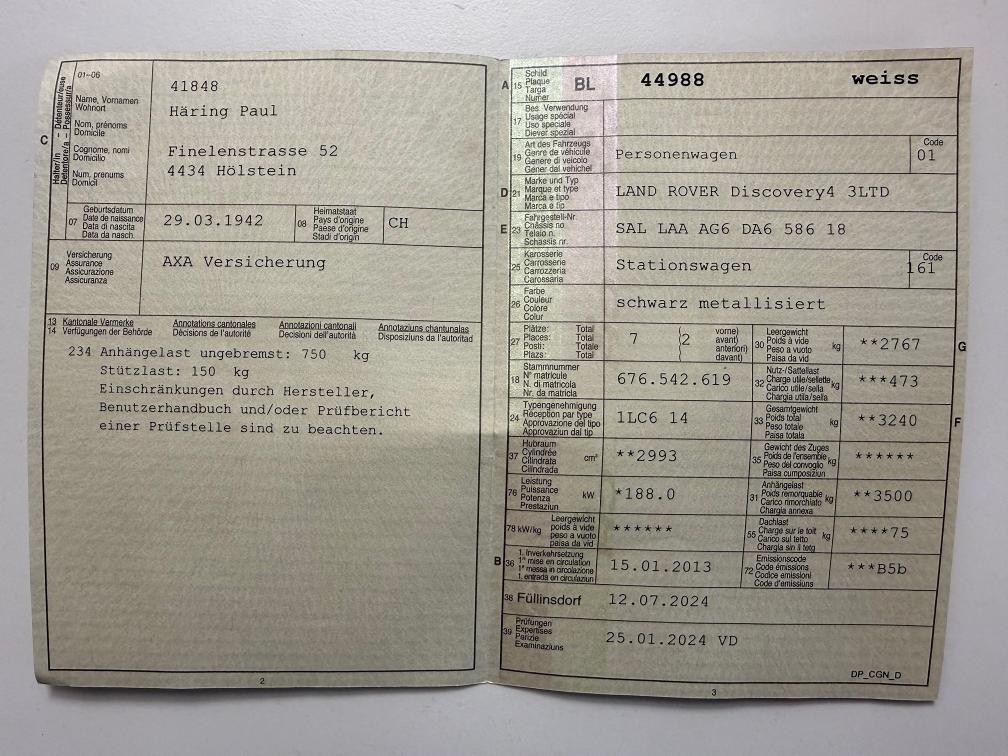 01-06
Halter/in – Détenteur/euse
Detentore/a – Possessur/a
C
Name, Vornamen
Wohnort
Nom, prénoms
Domicile
Cognome, nomi
Domicilio
Num, prenums
Domicil
41848
Häring Paul
Finelenstrasse 52
4434 Hölstein
07 Geburtsdatum
Date de naissance
Data di nascita
Data da nasch.
29.03.1942
08 Heimatstaat
Pays d'origine
Paese d'origine
Stadi d'origin
CH
09 Versicherung
Assurance
Assicurazione
Assicuranza
AXA Versicherung
13 Kantonale Vermerke Annotations cantonales Annotazioni cantonali Annotaziuns chantunalas
14 Verfügungen der Behörde Décisions de l'autorité Decisioni dell'autorità Disposiziuns da l'autoritad
234 Anhängelast ungebremst: 750 kg
Stützlast: 150 kg
Einschränkungen durch Hersteller,
Benutzerhandbuch und/oder Prüfbericht
einer Prüfstelle sind zu beachten.
2
A 15 Schild
Plaque
Targa
Numer
BL 44988 weiss
17 Bes. Verwendung
Usage spécial
Uso speciale
Diever spezial
19 Art des Fahrzeugs
Genre de véhicule
Genere di veicolo
Gener dal vehichel
Personenwagen
Code
01
D 21 Marke und Typ
Marque et type
Marca e tipo
Marca e tip
LAND ROVER Discovery4 3LTD
E 23 Fahrgestell-Nr.
Châssis no
Telaio n.
Schassis nr.
SAL LAA AG6 DA6 586 18
25 Karosserie
Carrosserie
Carrozzeria
Carossaria
Stationswagen
Code
161
26 Farbe
Couleur
Colore
Colur
schwarz metallisiert
27 Plätze: Total
Places: Total
Posti: Totale
Plazs: Total
7 (2 vorne)
avant)
anteriori)
davant)
30 Leergewicht
Poids à vide
Peso a vuoto
Paisa da vid
kg
**2767
G
18 Stammnummer
N° matricule
N. di matricola
Nr. da matricla
676.542.619
32 Nutz-/Sattellast
Charge utile/sellette
Carico utile/sella
Chargia utila/sella
kg
***473
24 Typengenehmigung
Réception par type
Approvazione del tipo
Approvaziun dal tip
1LC6 14
33 Gesamtgewicht
Poids total
Peso totale
Paisa totala
kg
**3240
F
37 Hubraum
Cylindrée
Cilindrata
Cilindrada
cm³
**2993
35 Gewicht des Zuges
Poids de l'ensemble
Peso del convoglio
Paisa cumposiziun
kg
******
76 Leistung
Puissance
Potenza
Prestaziun
kW
*188.0
31 Anhängelast
Poids remorquable
Carico rimorchiato
Chargia annexa
kg
**3500
78 kW/kg Leergewicht
poids à vide
peso a vuoto
paisa da vid
******
55 Dachlast
Charge sur le toit
Carico sul tetto
Chargia sin il tetg
kg
****75
B 36 1. Inverkehrsetzung
1re mise en circulation
1a messa in circolazione
1. entrada en circulaziun
15.01.2013
72 Emissionscode
Code émissions
Codice emissioni
Code d'emissiuns
***B5b
38 Füllinsdorf 12.07.2024
39 Prüfungen
Expertises
Perizie
Examinaziuns
25.01.2024 VD
DP_CGN_D
3